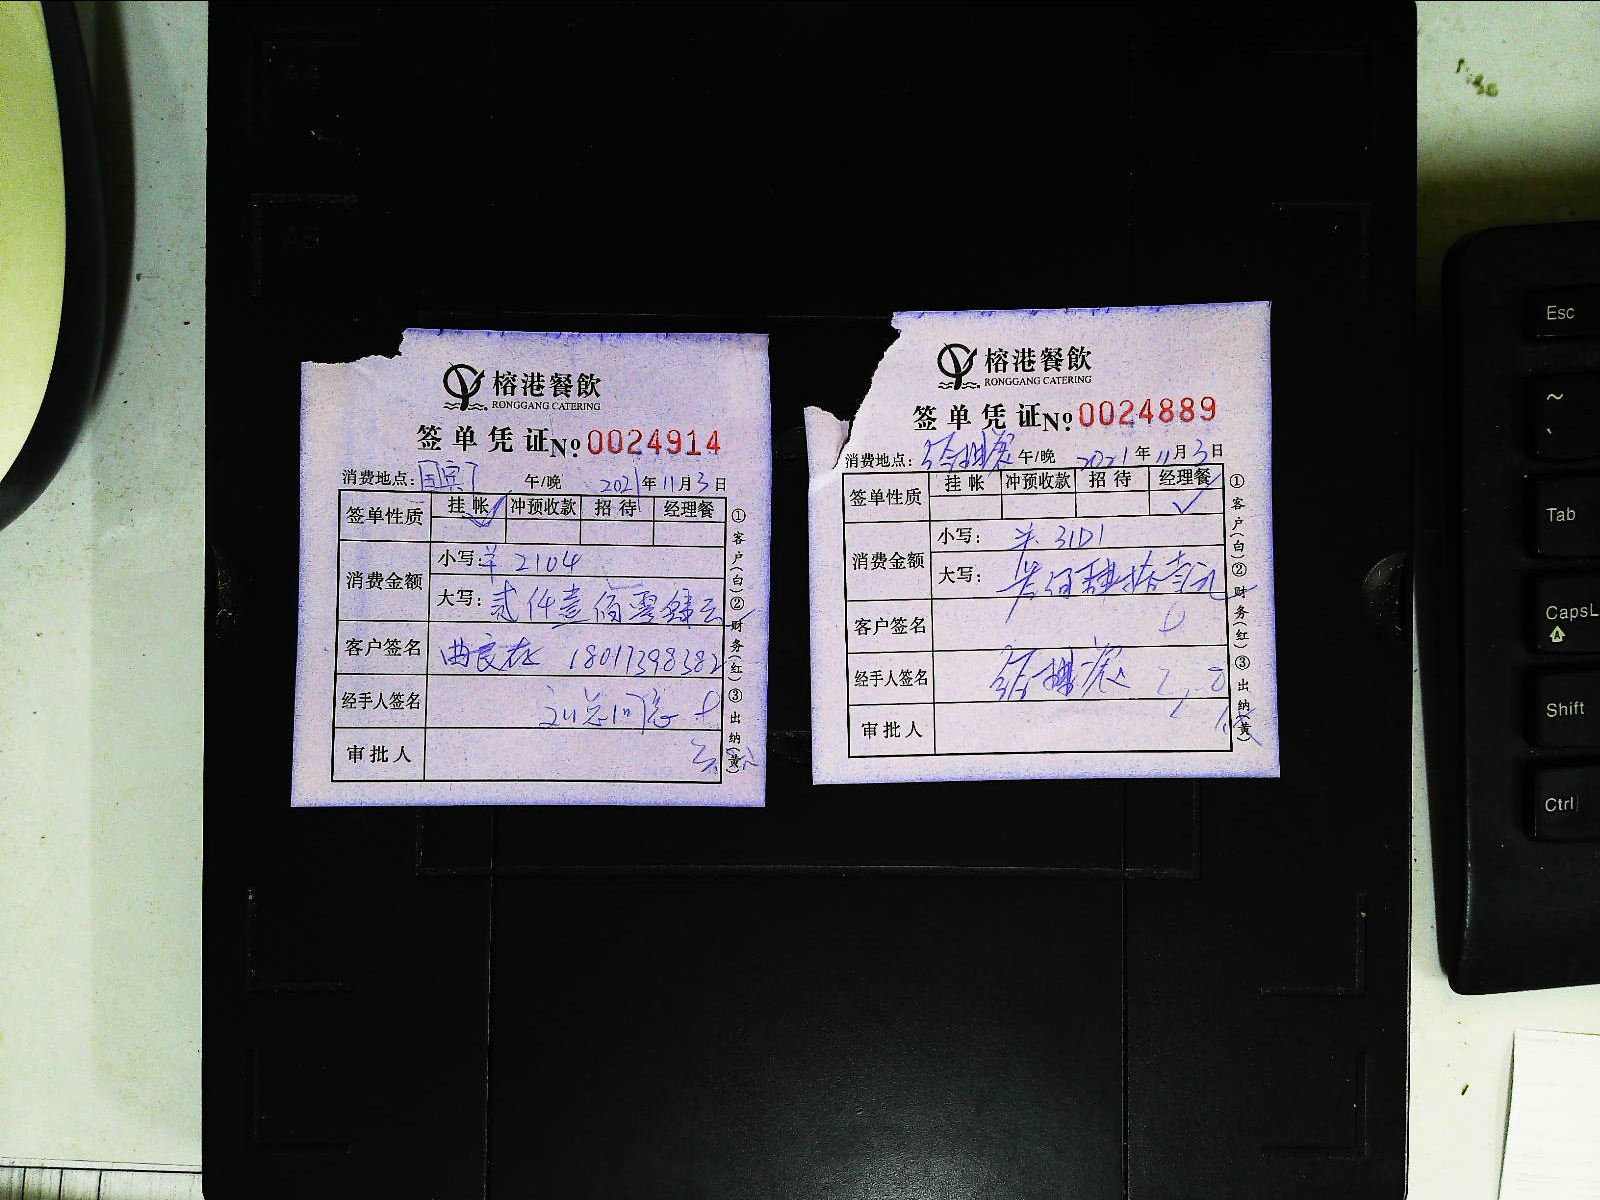 榕港餐飲
RONGGANG CATERING
签单凭证 № 0024914
消费地点: 国宾 午/晚 2021年11月3日
签单性质 挂帐 冲预收款 招待 经理餐
消费金额
小写: 羊 2104
大写: 贰仟壹佰零肆元
客户签名 曲良在 18017398382
经手人签名
审批人
①客户(白)②财务(红)③出纳(黄)
榕港餐飲
RONGGANG CATERING
签单凭证 № 0024889
消费地点: 午/晚 2021年11月3日
签单性质 挂帐 冲预收款 招待 经理餐
消费金额
小写:
大写:
客户签名
经手人签名
审批人
①客户(白)②财务(红)③出纳(黄)
Esc
~
Tab
CapsL
Shift
Ctrl